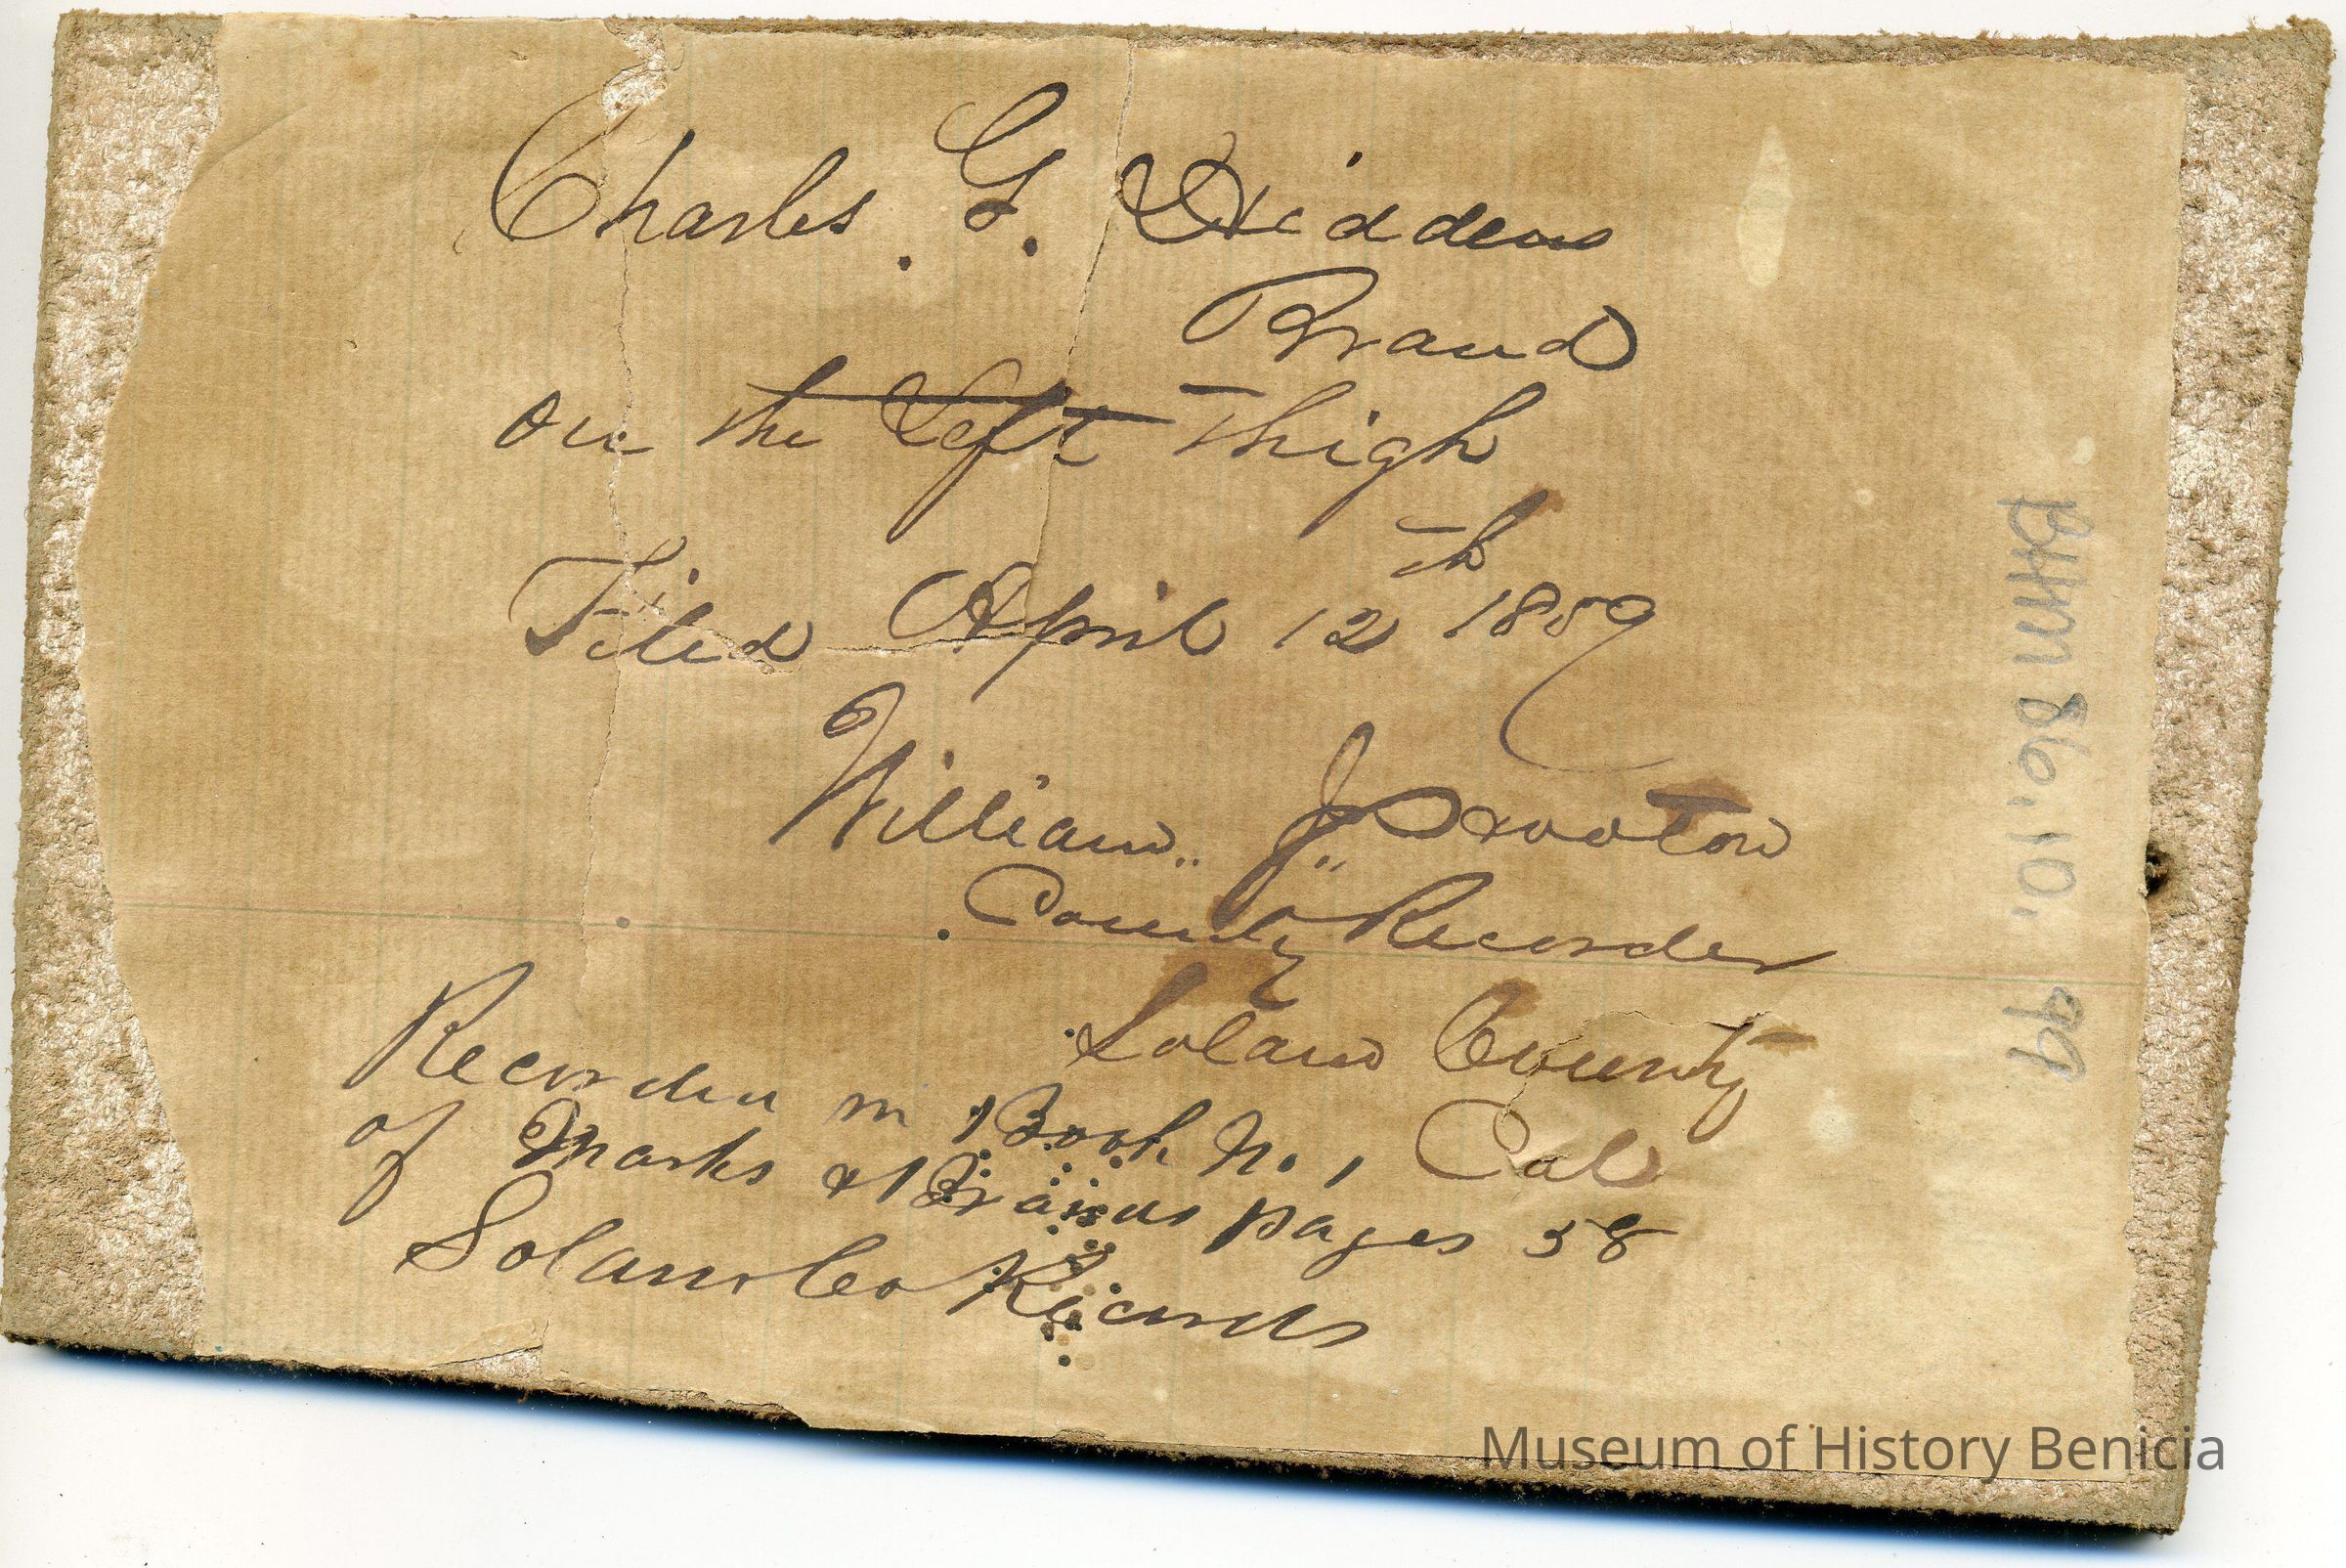 Charles . G. Hiddens
Brand
on the Left Thigh
Filed April 12th 1859
William J. Wooton
County Recorder
Solano County
Cal
Recorded in Book No. 1
of Marks & Brands pages 58
Solano Co Records
BHM 86.10.99
Museum of History Benicia